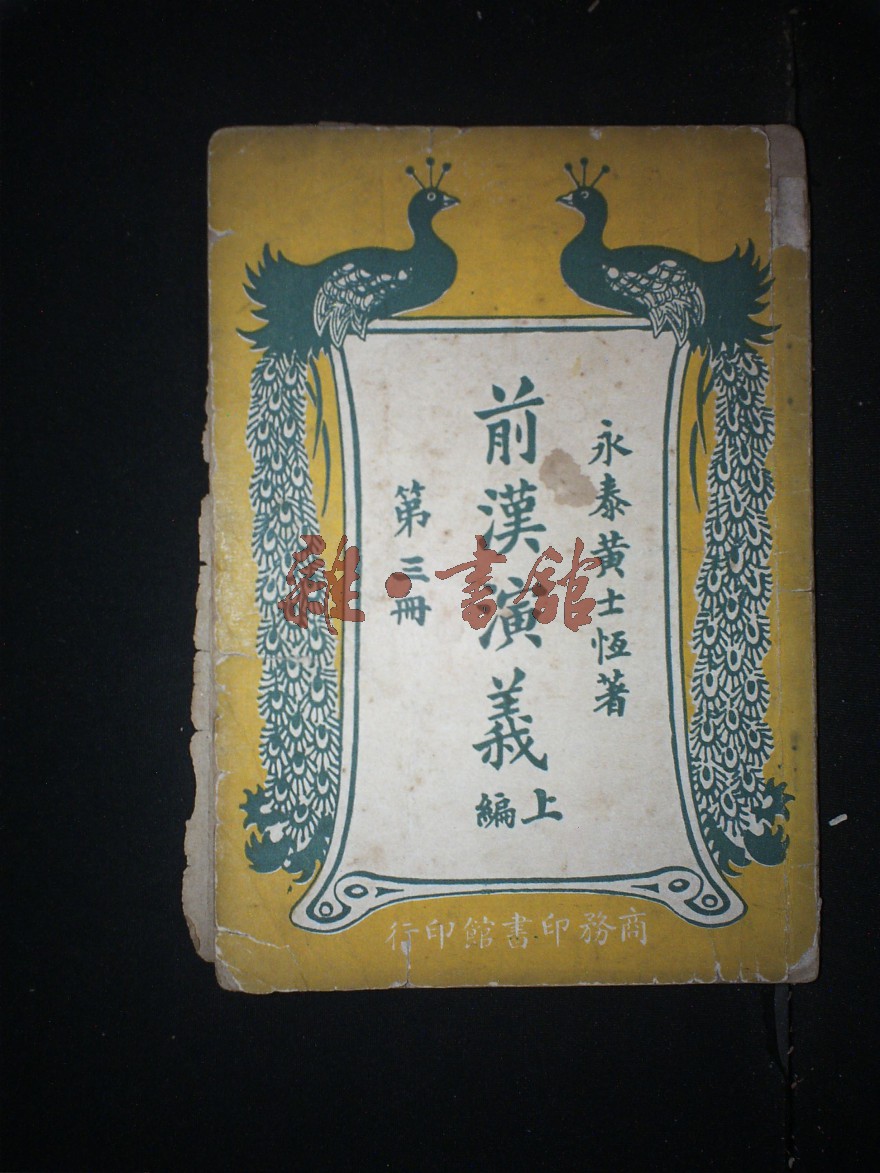 永泰黃士恆著
前漢演義上編
第三冊
商務印書館印行
雜·書舘